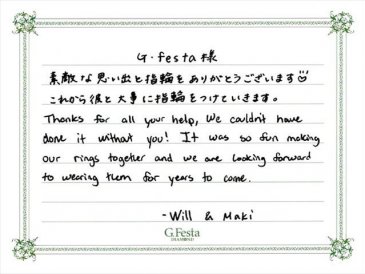 G.festa 様
素敵な思い出と指輪をありがとうございます☺
これから彼と大事に指輪をつけていきます。
Thanks for all your help, We couldn't have
done it without you! It was so fun making
our rings together and we are looking forward
to wearing them for years to come.
- Will & Maki
G.Festa
DIAMOND